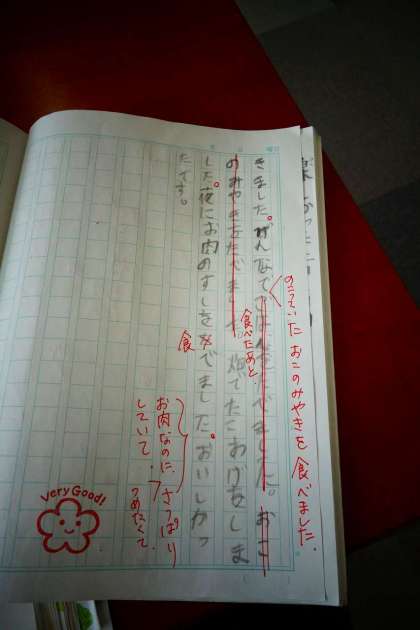 月 日 曜日
のっていた おこのみやきを 食べました.
きました。みんなで
おこ
のみやきをたべました。畑でたこあげをしま
食べたあと、
した。夜にお肉のすしを
ました。おいしかっ
食
たです。
お肉なのに、さっぱり
していて、
つめたくて
Very Good!